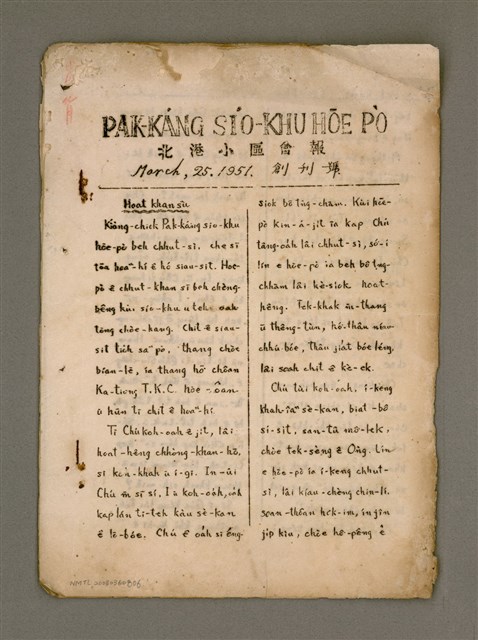 PAK-KÁNG SIÓ-KHU HŌE PÒ
北港小區會報
March, 25. 1951. 創刊號
Hoat khan sû
Kiông-chiek Pak-káng sio-khu
hōe-pò beh chhut-sì. che sī
tōa hoaⁿ-hí ê hó siau-sit. Hoe-
pò ê chhut-khan sī beh chèng-
bêng hit sio-khu ū teh oah
tāng chòe-kang. Chit ê siau-
sit tiúh saⁿ pò, thang chòe
bián-lē, ia thang hō͘ chôan
Ka-tiong T.K.C. hōe-ôan
ū hūn tī chit ê hoaⁿ-hí
Tī Chú koh-oah ê jit, lâi
hoat-hêng chhòng-khan-hō,
sī koh-khah ū ì-gī. In-ūi
Chú m̄ sī sí. I ū koh-oáh, iah
kap lán tī-teh kàu sè-kan
ê lō-bóe. Chú ê oáh sī éng-
siok bô tñg-chām. Kúi hōe-
pò kin-á-jít ia kap Chú
tāng-oáh lâi chhut-sì, só-í
lín ê hōe-pò ia beh bô tñg-
chhām lâi kè-siok hoat-
hêng. Tek-khak m̄-thang
ū thêng-tùn, hó-thâu
chhú-bóe, thâu jiát bóe léng,
lâi soah chit ê kè-ek.
Chú tùi koh-oáh, i-keng
khah-iâⁿ sè-kan, biát-bô
sí-sit, san-tû mô-lek,
chòe tek-sèng ê Ông. Lin
ê hōe-pò ia i-keng chhut-
sì, lâi kiàu-chèng chin-lí.
soan-thôan hok-im, ín-jín
jíp kàu, chòe hô-pêng ê
NMTL